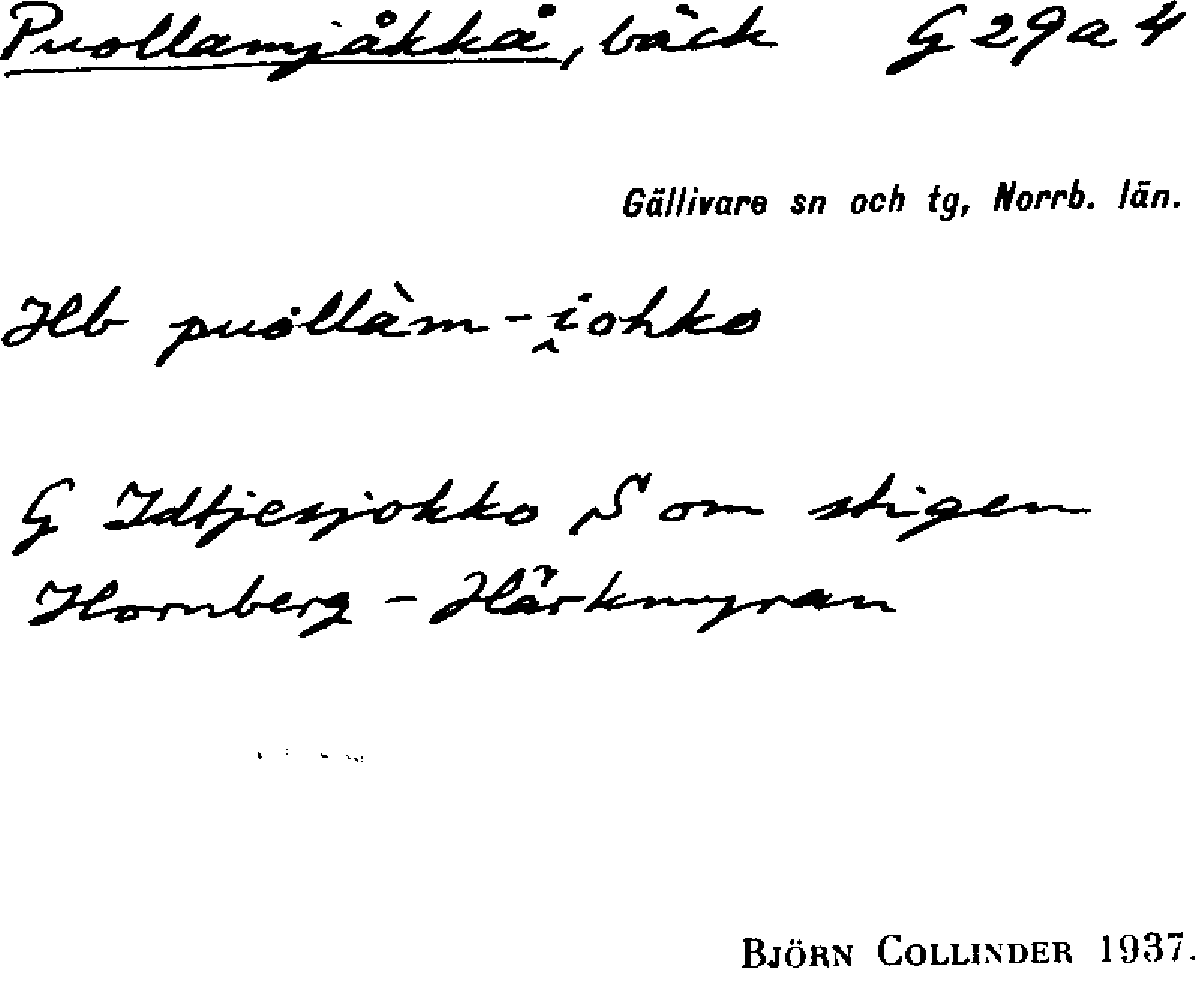 Puollamjåkkå, bäck G 29 a 4
Gällivare sn och tg, Norrb. län.
Hb puollàm-i̭ohko
G Idtjesjokko, S om stigen
Hornberg - Härkmyran
BJÖRN COLLINDER 1937.